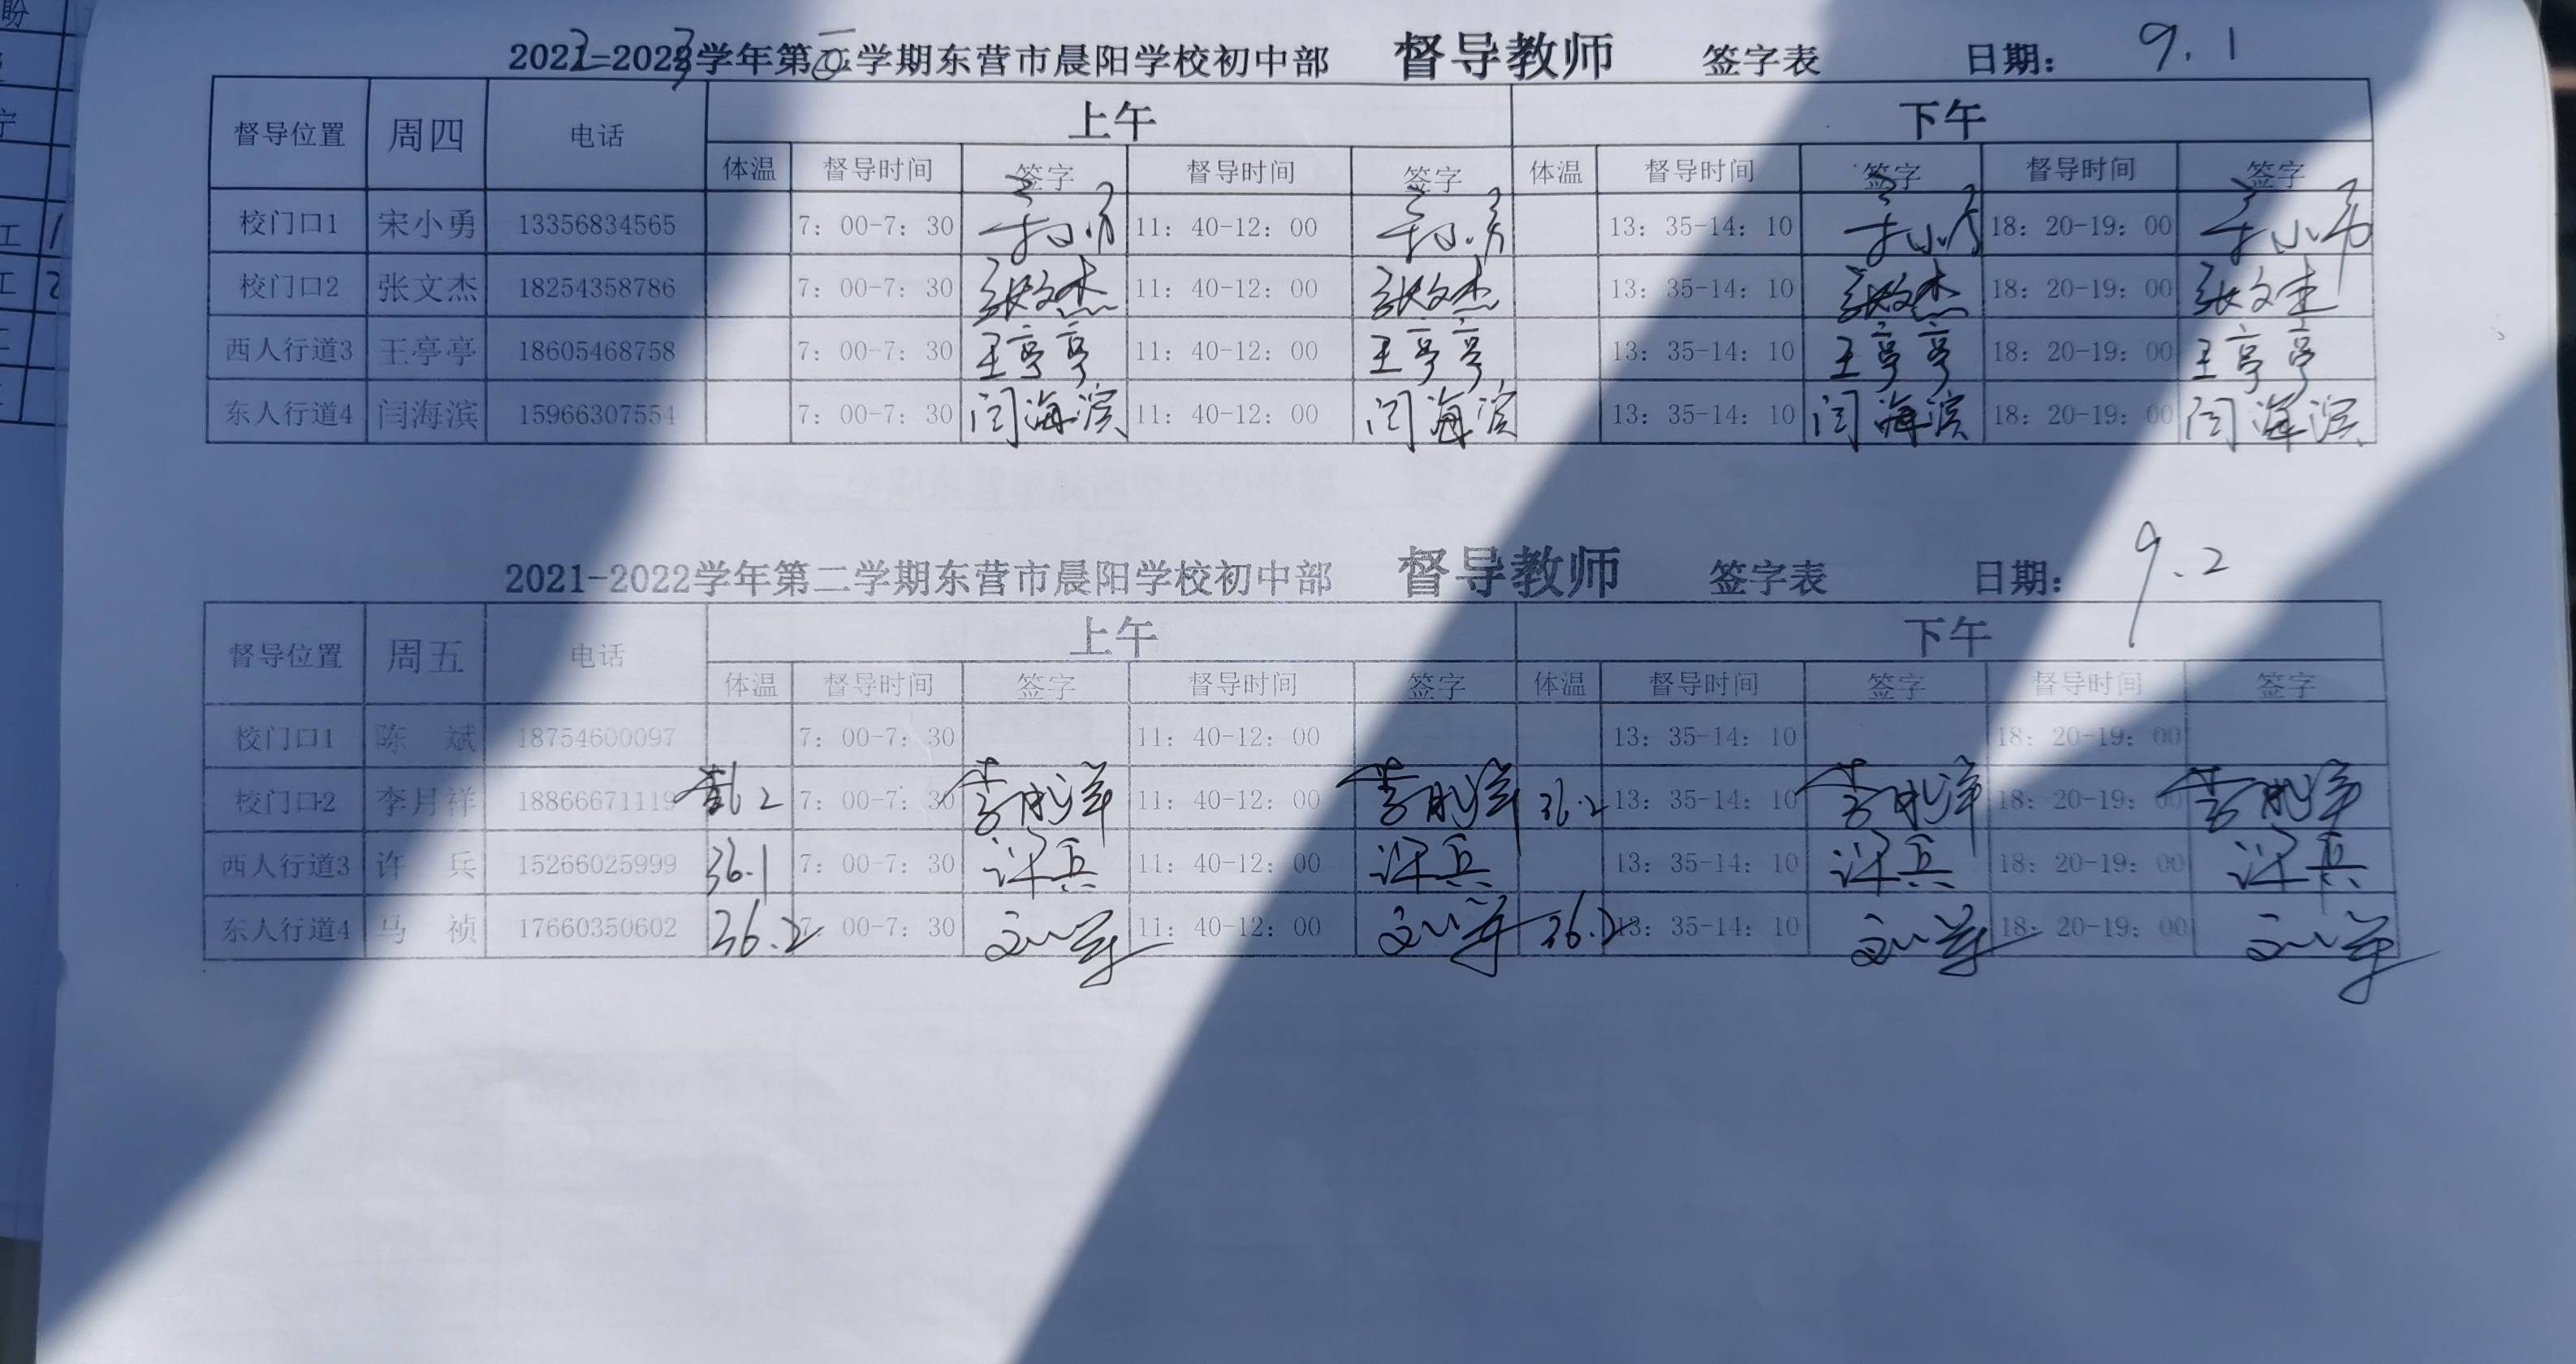 2022-2023学年第一学期东营市晨阳学校初中部 督导教师 签字表 日期: 9.1
督导位置 周四 电话 上午 下午
体温 督导时间 签字 督导时间 签字 体温 督导时间 签字 督导时间 签字
校门口1 宋小勇 13356834565 7:00-7:30 宋小勇 11:40-12:00 宋小勇 13:35-14:10 宋小勇 18:20-19:00 宋小勇
校门口2 张文杰 18254358786 7:00-7:30 张文杰 11:40-12:00 张文杰 13:35-14:10 张文杰 18:20-19:00 张文杰
西人行道3 王亭亭 18605468758 7:00-7:30 王亭亭 11:40-12:00 王亭亭 13:35-14:10 王亭亭 18:20-19:00 王亭亭
东人行道4 闫海滨 15966307554 7:00-7:30 闫海滨 11:40-12:00 闫海滨 13:35-14:10 闫海滨 18:20-19:00 闫海滨
2021-2022学年第二学期东营市晨阳学校初中部 督导教师 签字表 日期: 9.2
督导位置 周五 电话 上午 下午
体温 督导时间 签字 督导时间 签字 体温 督导时间 签字 督导时间 签字
校门口1 陈 斌 18754600097 7:00-7:30 11:40-12:00 13:35-14:10 18:20-19:00
校门口2 李月祥 18866671119 36.2 7:00-7:30 李月祥 11:40-12:00 李月祥 36.2 13:35-14:10 李月祥 18:20-19:00 李月祥
西人行道3 许 兵 15266025999 36.1 7:00-7:30 许兵 11:40-12:00 许兵 13:35-14:10 许兵 18:20-19:00 许兵
东人行道4 马 祯 17660350602 36.2 7:00-7:30 11:40-12:00 36.2 13:35-14:10 18:20-19:00